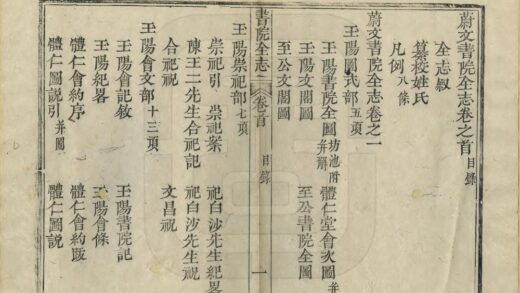 蔚文書院全志卷之首 目錄
全志敘
纂校姓氏
凡例 八條
蔚文書院全志卷之一
玉陽圖式部 五項
玉陽書院全圖 坊池附并解 體仁堂會次圖
玉陽文閣圖 至公書院全圖
至公文閣圖
書院全志 卷首 目錄 一
玉陽崇祀部 七項
崇祀引 崇祀案 祀白沙先生紀畧
陳王二先生合祀記 祀白沙先生祝
合祀祝 文昌祝
玉陽會文部 十三項
玉陽會記敘 玉陽書院記
玉陽紀畧 玉陽會條
體仁會約序 體仁會約跋
體仁圖說引 并圖 體仁圖說